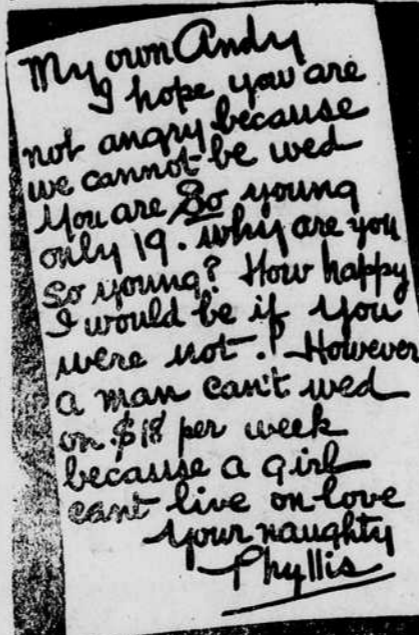 My own Andy
I hope you are
not angry because
we cannot be wed
you are So young
only 19. why are you
so young? How happy
I would be if you
were not.! However
a man can't wed
on $18 per week
because a girl
cant live on love
your naughty
Phyllis